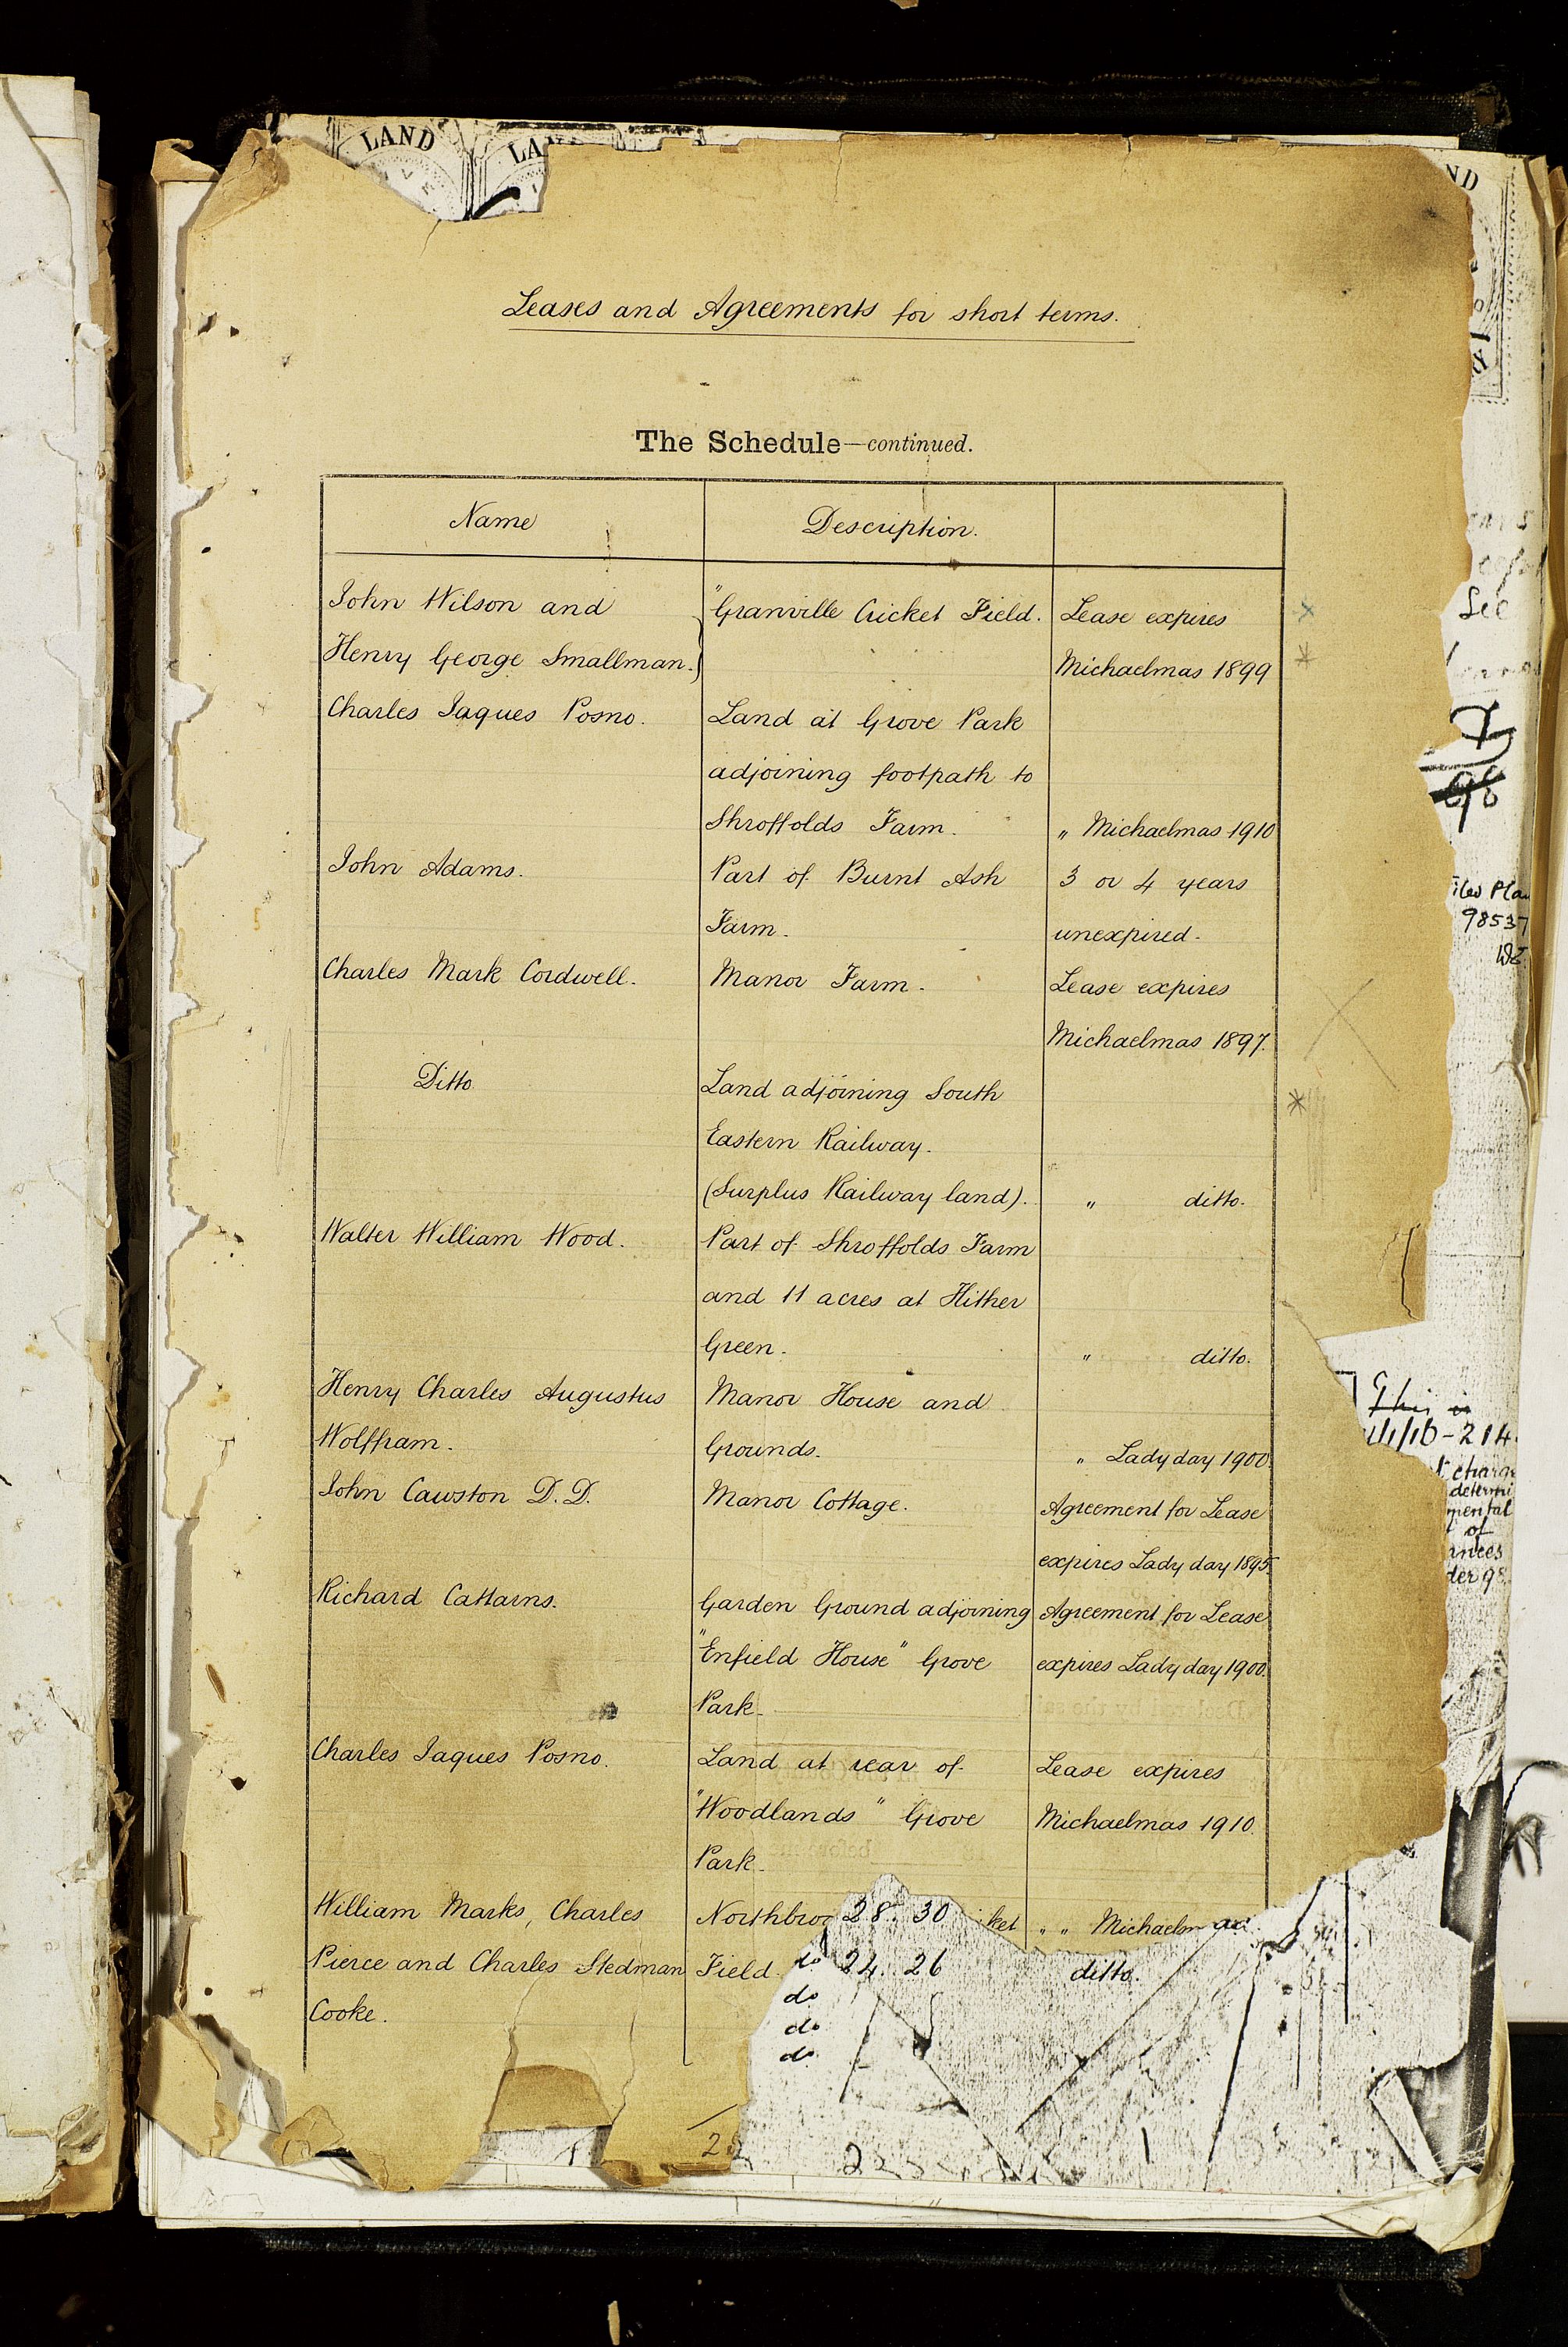 LAND
Leases and Agreements for short terms.
The Schedule—continued.
Name
Description.
John Wilson and
"Granville Cricket Field.
Lease expires
Henry George Smallman.
Michaelmas 1899
Charles Jaques Posno.
Land at Grove Park
adjoining footpath to
Shroffolds Farm.
" Michaelmas 1910
John Adams.
Part of Burnt Ash
3 or 4 years
Farm.
unexpired.
Charles Mark Cordwell.
Manor Farm.
Lease expires
Michaelmas 1897.
Ditto
Land adjoining South
Eastern Railway.
(Surplus Railway land).
" ditto.
Walter William Wood.
Part of Shroffolds Farm
and 11 acres at Hither
Green.
" ditto.
Henry Charles Augustus
Manor House and
Wolffram.
Grounds.
" Lady day 1900.
John Cawston D.D.
Manor Cottage.
Agreement for Lease
expires Lady day 1895.
Richard Cattarns.
Garden Ground adjoining
Agreement for Lease
"Enfield House" Grove
expires Lady day 1900.
Park.
Charles Jaques Posno.
Land at rear of
Lease expires
"Woodlands" Grove
Michaelmas 1910.
Park.
William Marks, Charles
Northbroo 28. 30 ket
" " Michaelm
Pierce and Charles Stedman
Field.
do 24. 26
ditto.
Cooke.
do
do
do
98537
This is
of